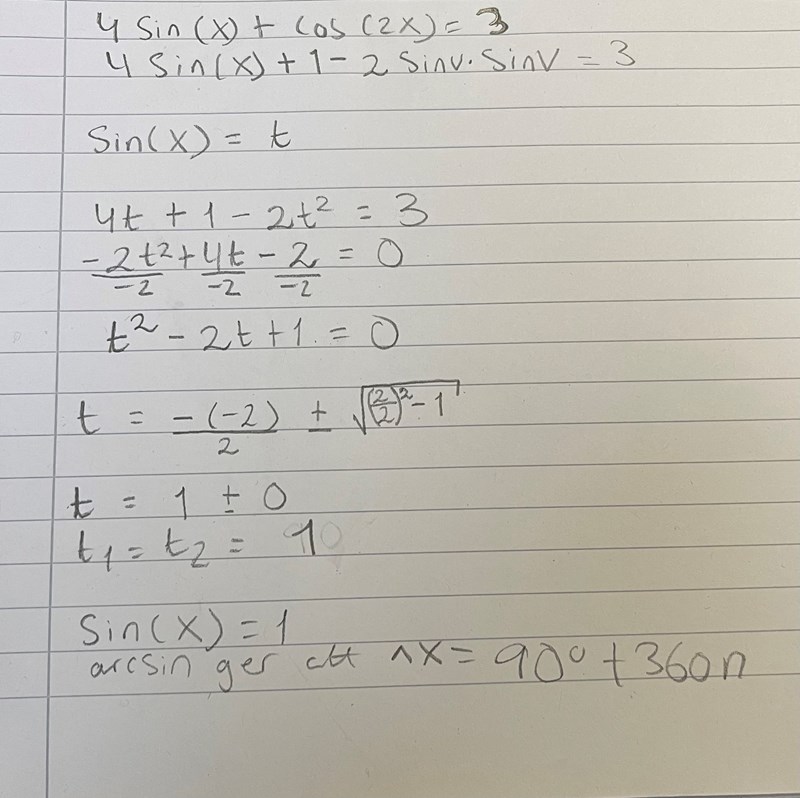 4 Sin(x) + Cos(2x) = 3
4 Sin(x) + 1 - 2 Sinv · Sinv = 3
Sin(x) = t
4t + 1 - 2t² = 3
-2t²/-2 + 4t/-2 - 2/-2 = 0
t² - 2t + 1 = 0
t = -(-2)/2 ± √((2/2)² - 1)
t = 1 ± 0
t₁ = t₂ = 1
Sin(x) = 1
arcsin ger att x = 90° + 360n